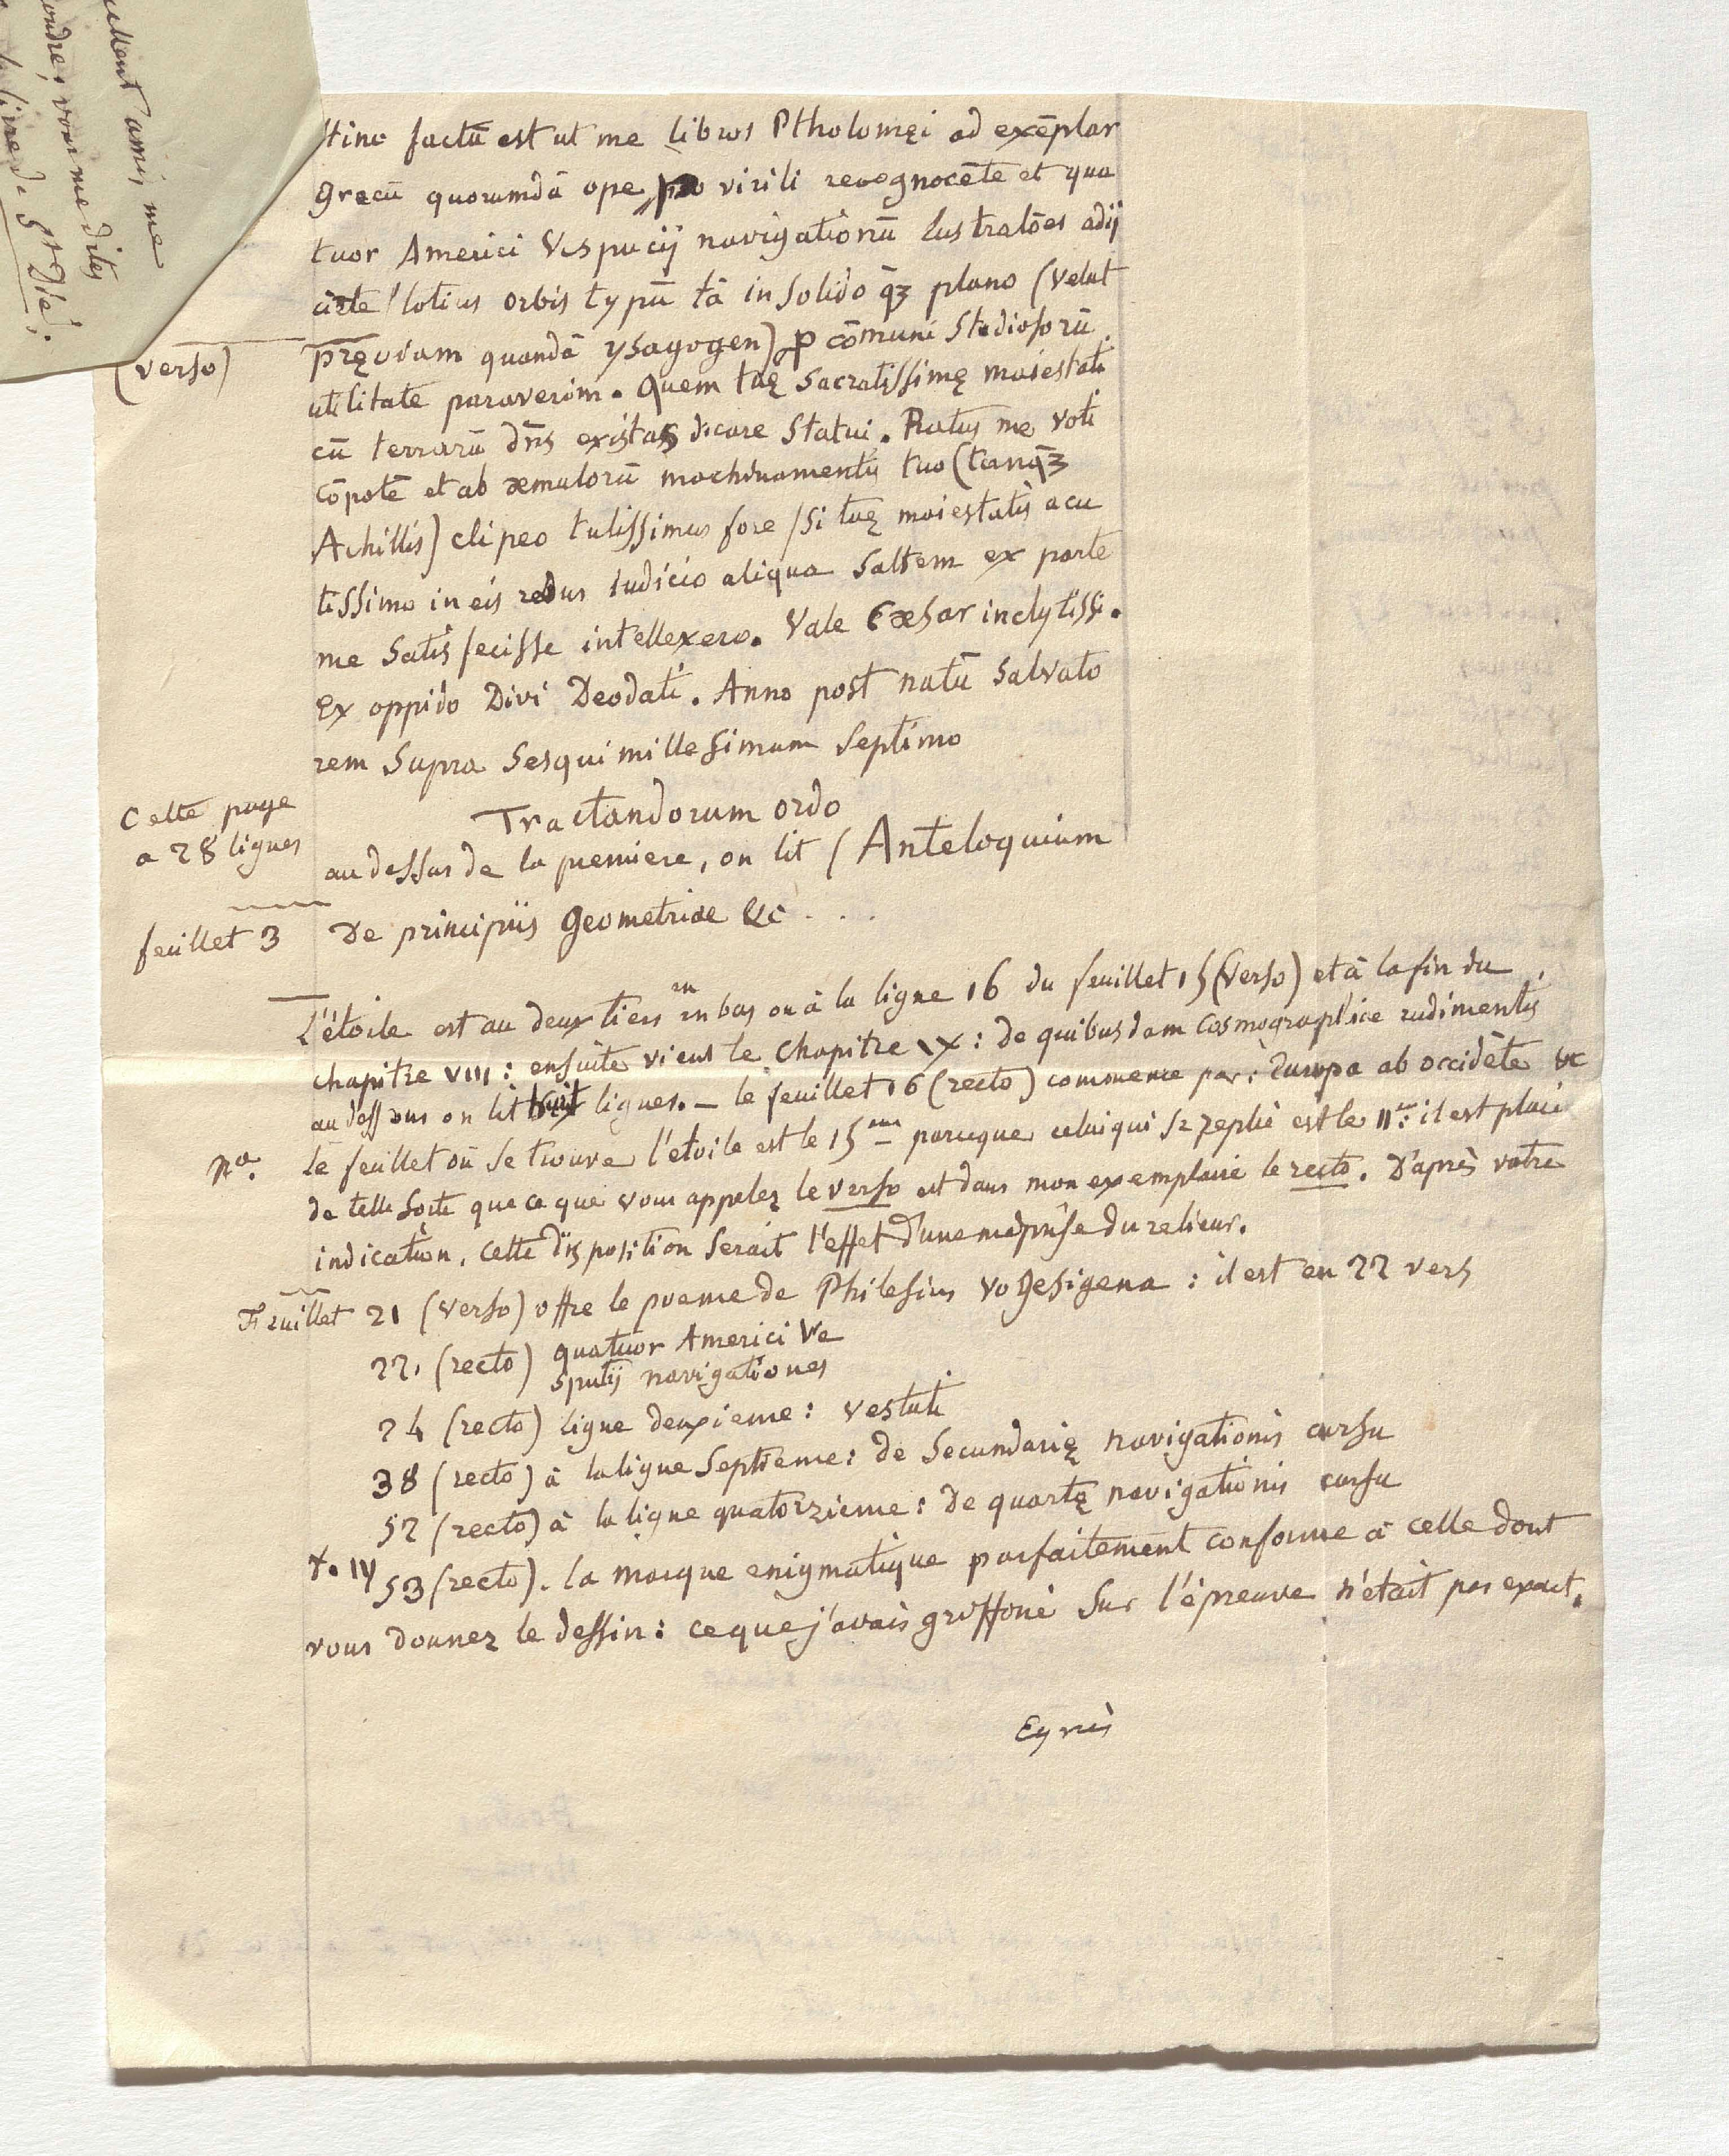 ullent amis me
ondre, vous me dites
livre de St Dié.
Hinc factū est ut me libros Ptholomęi ad exēplar
grecū quorumdā ope pro virili recognocēte et qua
tuor Americi Vespucij navigationū lustratōes adij
ciēte / totius orbis typū tā in solido q̄ꝫ plano (velut
(verso)
pręviam quandā ysagogen) ꝓ cōmuni studiosorū
utilitate paraverim. Quem tuę sacratissimę maiestati
cū terrarū dn̄s existas dicare statui. Ratus me voti
cōpotē et ab æmulorū machinamentis tuo (tanq̄ꝫ
Achillis) clipeo tutissimus fore / si tuę maiestatis acu
tissimo in eis rebus iudicio aliqua saltem ex parte
me satisfecisse intellexero. Vale Cæsar inclytissi.
Ex oppido Divi Deodati. Anno post natū salvato
rem supra sesquimillesimum septimo
Tractandorum ordo
Cette page
a 28 lignes
au dessus de la premiere, on lit (Anteloquium
feuillet 3
De principiis Geometriae &c...
L'étoile est au deux tiers en bas ou à la ligne 16 du feuillet 15 (verso) et à la fin du
chapitre VIII : ensuite vient le chapitre IX : de quibusdam Cosmographiae rudimentis
au dessous on lit huit lignes. — le feuillet 16 (recto) commence par : Europa ab occidēte &c
Na. Le feuillet où se trouve l'étoile est le 15eme parceque celui qui se replie est le 11e: il est placé
de telle sorte que ce que vous appelez le verso est dans mon exemplaire le recto. D'après votre
indication, cette disposition serait l'effet d'une méprise du relieur.
Feuillet 21 (verso) offre le poeme de Philesius Vogesigena : il est en 22 vers
22, (recto) quatuor Americi Ve
sputij navigationes
24 (recto) ligne deuxieme : vestuti
38 (recto) à la ligne septieme : de secundarię navigationis cursu
52 (recto) à la ligne quatorzieme : De quartę navigationis cursu
53 (recto). la marque enigmatique parfaitement conforme à celle dont
vous donnez le dessin : ce que j'avais griffoné sur l'épreuve n'était pas exact.
Eyriès